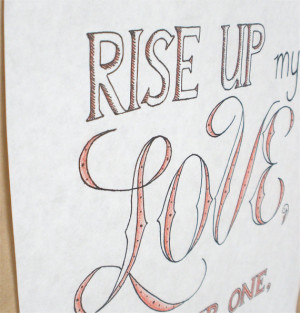 RISE UP my
LOVE,
ONE,